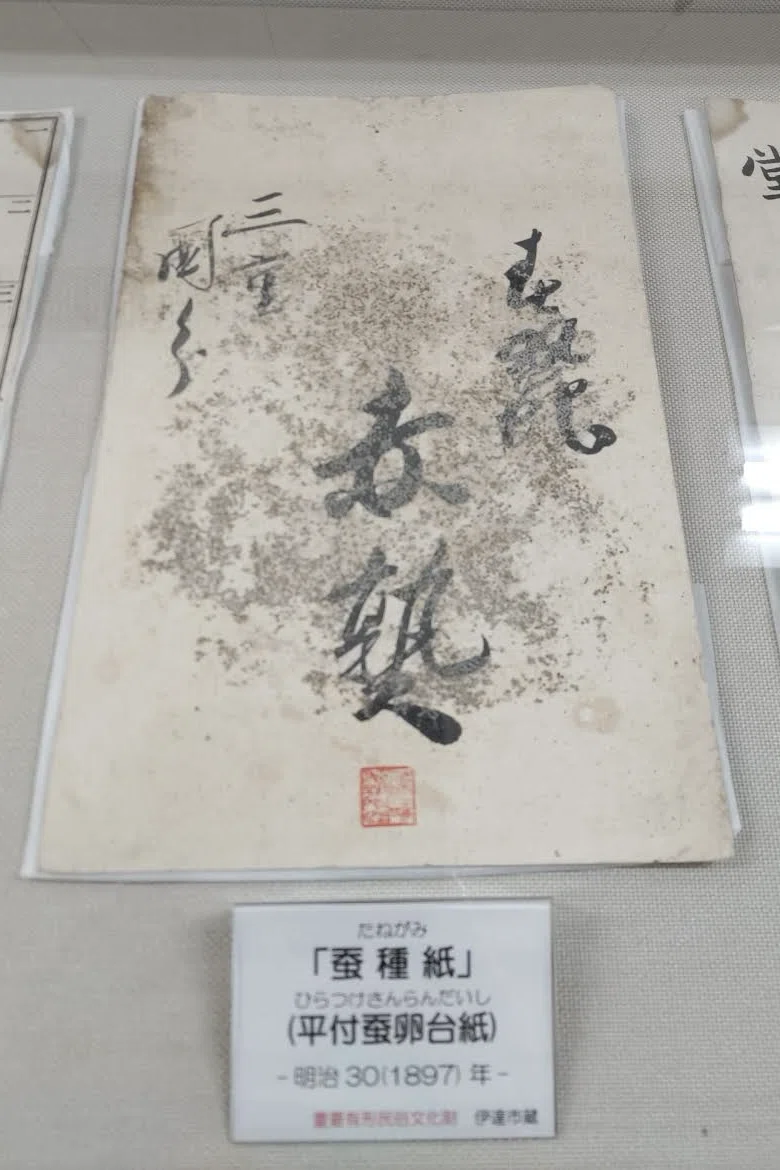 赤熟
三重
国分
たねがみ
「蚕種紙」
ひらつけさんらんだいし
(平付蚕卵台紙)
- 明治 30(1897) 年 -
重要有形民俗文化財 伊達市蔵
一
二
三
堂